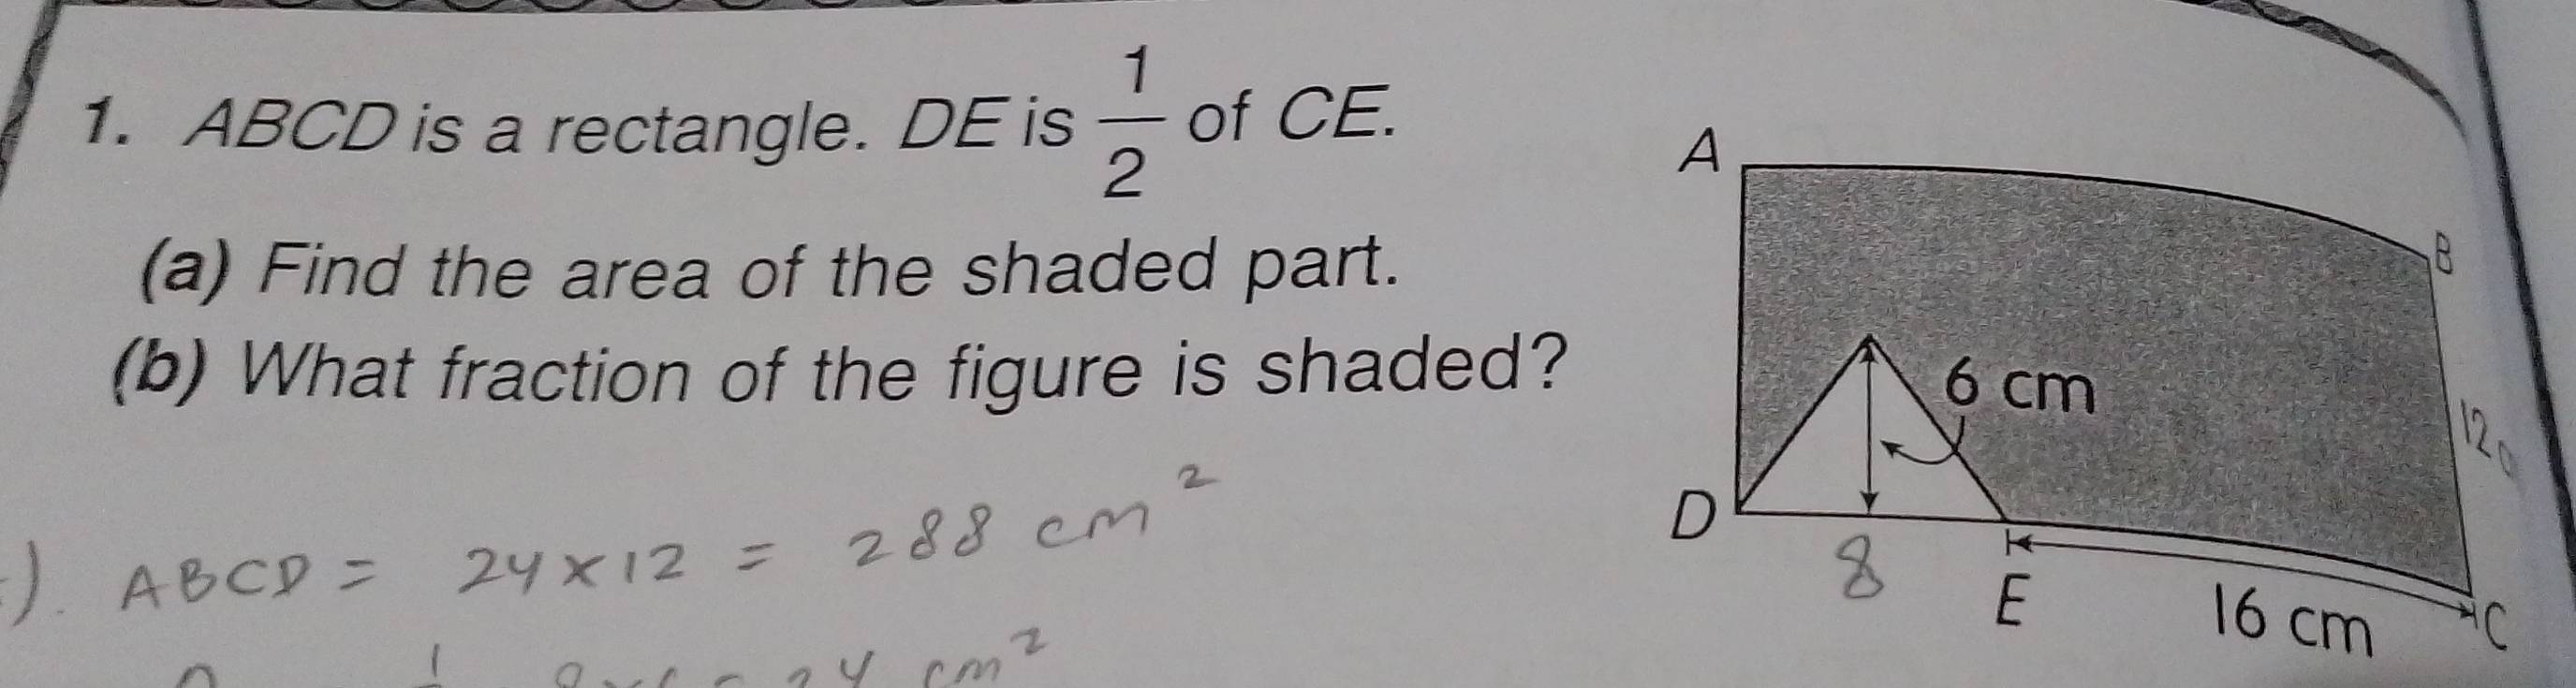 1. ABCD is a rectangle. DE is 1/2 of CE.
(a) Find the area of the shaded part.
(b) What fraction of the figure is shaded?
A
B
6 cm
12
D
8
E
16 cm
C
). ABCD = 24 x 12 = 288 cm²
24 cm²